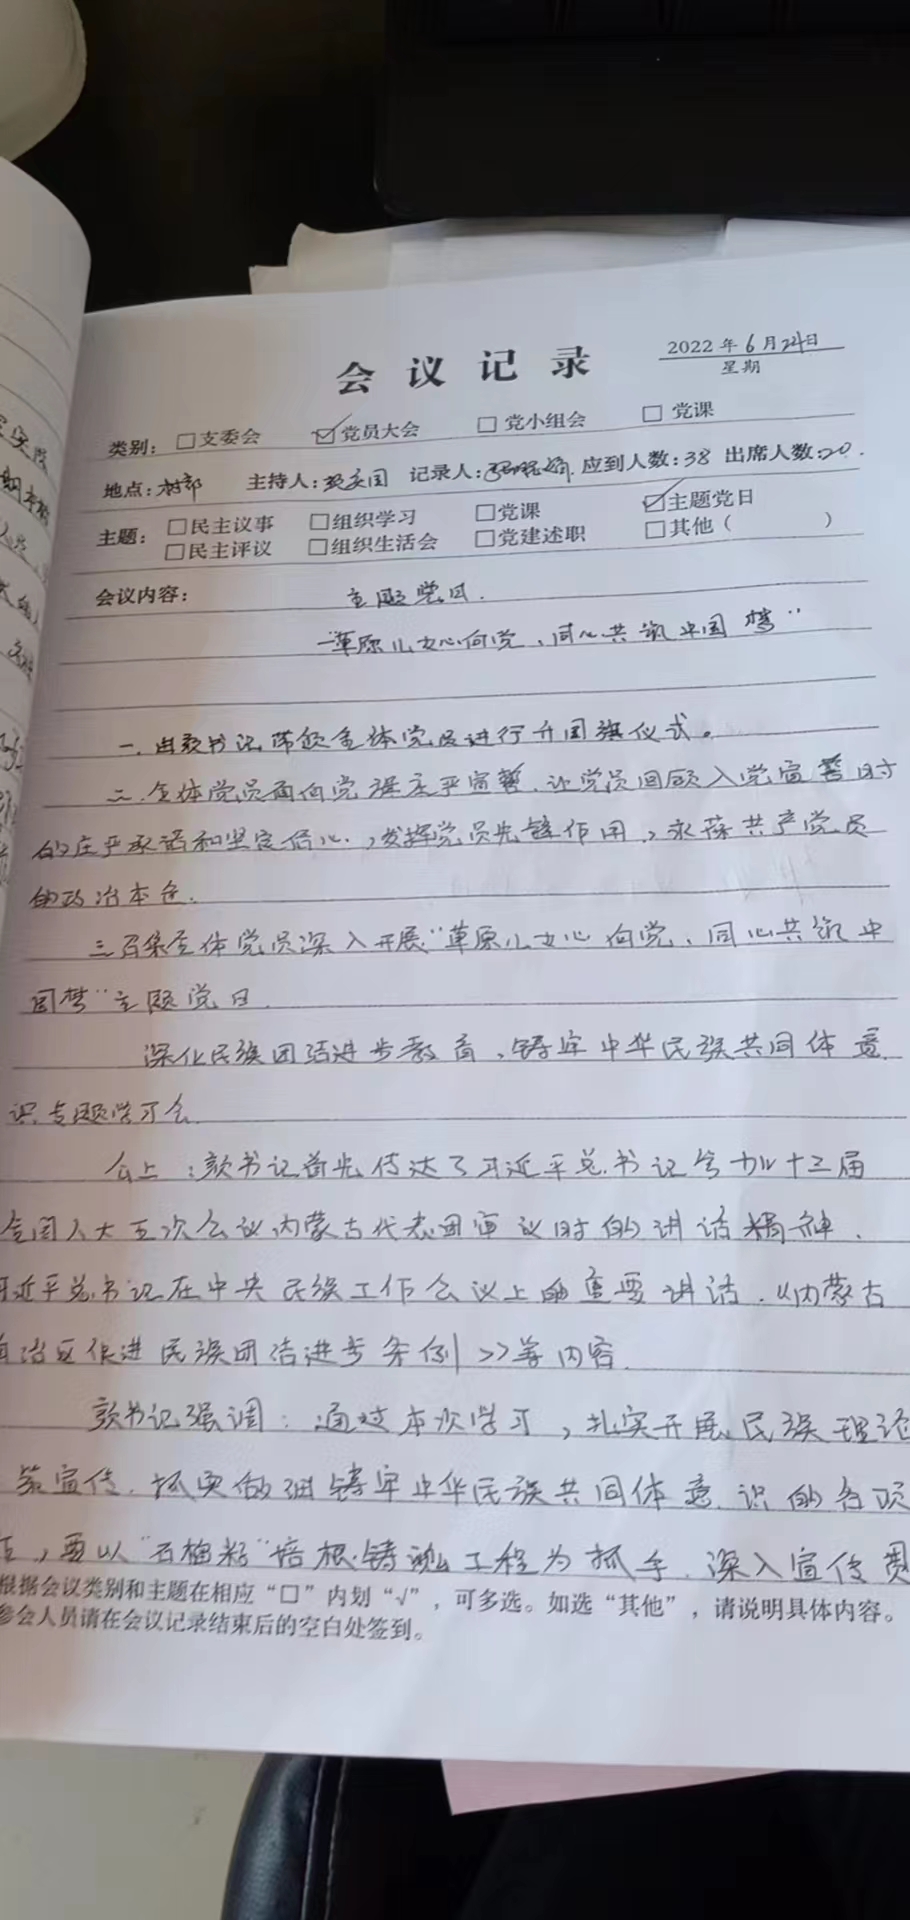 会议记录
2022年6月24日
星期
类别：□支委会 ☑党员大会 □党小组会 □党课
地点：村部 主持人： 记录人： 应到人数：38 出席人数：20.
主题：□民主议事 □组织学习 □党课 ☑主题党日
□民主评议 □组织生活会 □党建述职 □其他（ ）
会议内容： 主题党日.
"草原儿女心向党、同心共筑中国梦"
一.由 书记带领全体党员进行升国旗仪式。
二.全体党员面向党旗庄严宣誓.让党员回顾入党宣誓时
的庄严承诺和坚定信心.,发挥党员先锋作用,永葆共产党员
的政治本色.
三召集全体党员深入开展"草原儿女心向党、同心共筑中
国梦"主题党日.
深化民族团结进步教育、铸牢中华民族共同体意
识专题学习会
会上： 书记首先传达了习近平总书记参加十三届
全国人大五次会议内蒙古代表团审议时的讲话精神、
习近平总书记在中央民族工作会议上的重要讲话.《内蒙古
自治区促进民族团结进步条例》等内容.
书记强调：通过本次学习,扎实开展民族理论
策宣传.抓实做细铸牢中华民族共同体意识的各项
,要以"石榴籽"培根铸魂工程为抓手.深入宣传贯
根据会议类别和主题在相应“□”内划“√”，可多选。如选“其他”，请说明具体内容。
参会人员请在会议记录结束后的空白处签到。